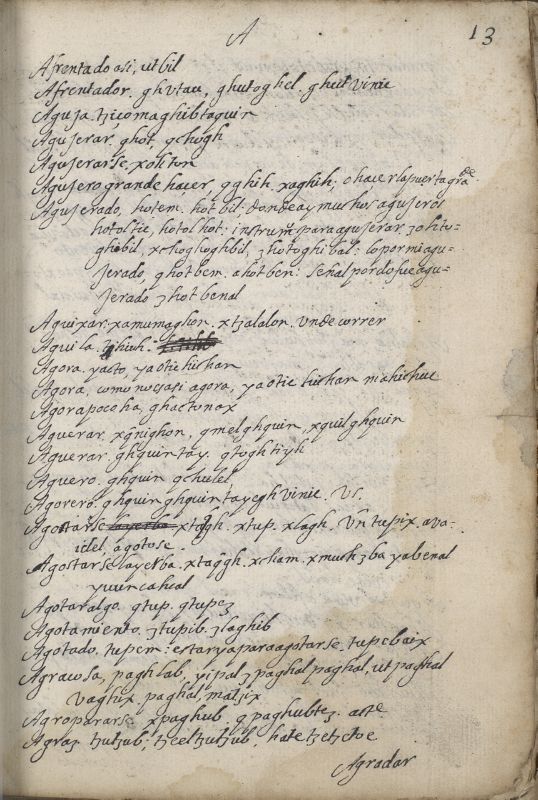 A
13
Afrentado asi, utbil
Afrentador. ghutau, ghutoghel. ghut vinic
Aguja. tzicomaghibtaquir
Agujerar. ghot, qchogh
Agujerarse. xoliton
Agujero grande hacer, qghih. xaghih, o hacer la puerta grade
Agujerado, hotem. hotbil: donde ay muchos agujeros
hotoltic, hotolhot: instrumto para agujerar. zohito-
ghibil, xchoghoghbil, zhotoghibal: lo por mi agu-
jerado, ghotbem. ahotben: señal por do fue agu-
jerado zhotbenal
Aguixar. xamumaghon. xtzalalon. Unde correr
Aguila. tzhiuh.
Agora. yacto, yaotic hichan
Agora, como no casi agora, yaotic hichan mahichuc
Agora poco ha, ghactonax
Aguerar. xgnighon, qmelghquin, xquilghquin
Aguerar. ghquintay. gtoghtiyh
Aguero. ghquin qchulel
Agorero. ghquinghquintayeghvinic. Vs.
Agostarse layerba xtaqgh. xtup. xlagh. Vn tupix ava-
idel, agotose.
Agostarse layerba. xtaqgh. xcham. xmuchzba yabenal
yuun cahcal
Agotar algo. qtup. qtupez
Agotamiento. ztupib. zlaghib
Agotado, tupem: estar ya para agotarse. tupcbaix
Agrawsa, paghlab, yipalz paghal paghal, ut paghal
vaghix, paghal, matzix
Agropararse. xpaghub. q paghubtez. actc
Agraz. tzutzub; tzeeltzutzub, hatetzetzetoc
Agradar